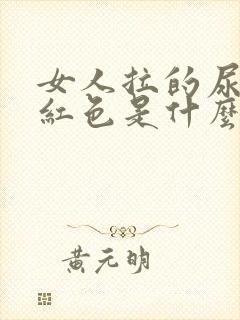 女人拉的尿
紅色是什麼
黃元明